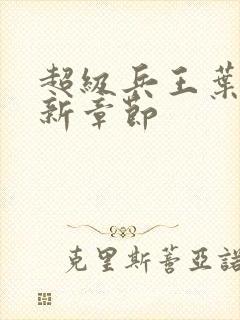 超級兵王葉
新章節
克里斯蒂亞諾